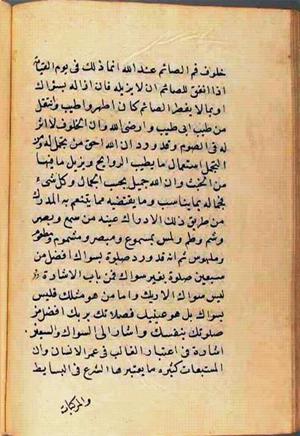 خلوف فم الصائم عند الله انما ذلك في يوم القيامة
اذا اتفق للصائم ان لا يزيله فان ازاله بسواك
او بما لا يفطر الصائم كان اطهر واطيب وانتقل
من طيب الى طيب وارضى الله وان الخلوف لا اثر
له في الصوم وقد ورد ان الله احق من تجمل له ومن
التجمل استعمال ما يطيب الروايح ويزيل ما فيها
من الخبث وان الله جميل يحب الجمال وكل شيء
فجماله بما يناسب وما يقتضيه مما يتنعم به المدرك
من طريق ذلك الادراك عينه من سمع وبصر
وشم وطعم ولمس بمسموع ومبصر ومشموم ومطعوم
وملموس ثم انه قد ورد صلوة بسواك افضل من
سبعين صلوة بغير سواك فمن باب الاشارة
ليس سواك الا ربك واما من هو مثلك فليس
بسواك بل هو عينك فصلاتك بربك افضل من
صلوتك بنفسك واشار الى السواك والسبعين
اشارة في اعتبار الغالب في عمر الانسان وان
المستبعات كثيرة ما يعتبرها الشرع في البسايط
والمركبات